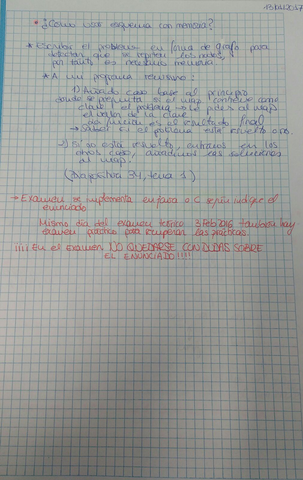 13/01/2017
• ¿Cómo usar esquema con memoria?
* Escribir el problema en forma de grafo para
detectar que se repiten los nodos,
por tanto es necesario memoria.
* A un programa recursivo:
1) Añado caso base al principio
donde se pregunta si el map contiene como
clave el problema → Le pides al map
el valor de la clave
es el resultado final
→ Sabes si el problema está resuelto o no.
2) Si no está resuelto, entramos en los
otros casos, añadimos las soluciones
al map.
(Diapositiva 34, tema 3)
→ Examen se implementa en Java o C según indique el
enunciado
Mismo día del examen teórico 3 Feb 2016 También hay
examen práctico para recuperar las prácticas.
¡¡¡¡ En el examen NO QUEDARSE CON DUDAS SOBRE
EL ENUNCIADO!!!!!